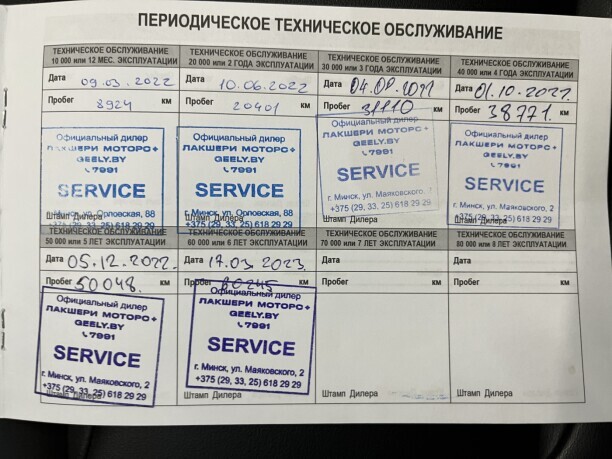 ПЕРИОДИЧЕСКОЕ ТЕХНИЧЕСКОЕ ОБСЛУЖИВАНИЕ
ТЕХНИЧЕСКОЕ ОБСЛУЖИВАНИЕ
10 000 или 12 МЕС. ЭКСПЛУАТАЦИИ
Дата 09.03.2022
Пробег 8924 км
Официальный дилер
ЛАКШЕРИ МОТОРС+
GEELY.BY
7991
SERVICE
г. Минск, ул. Орловская, 88
+375 (29, 33, 25) 618 29 29
Штамп Дилера
ТЕХНИЧЕСКОЕ ОБСЛУЖИВАНИЕ
20 000 или 2 ГОДА ЭКСПЛУАТАЦИИ
Дата 10.06.2022
Пробег 20401 км
Официальный дилер
ЛАКШЕРИ МОТОРС+
GEELY.BY
7991
SERVICE
г. Минск, ул. Орловская, 88
+375 (29, 33, 25) 618 29 29
Штамп Дилера
ТЕХНИЧЕСКОЕ ОБСЛУЖИВАНИЕ
30 000 или 3 ГОДА ЭКСПЛУАТАЦИИ
Дата
Пробег 31110 км
Официальный дилер
ЛАКШЕРИ МОТОРС+
GEELY.BY
7991
SERVICE
г. Минск, ул. Маяковского, 2
+375 (29, 33, 25) 618 29 29
Штамп Дилера
ТЕХНИЧЕСКОЕ ОБСЛУЖИВАНИЕ
40 000 или 4 ГОДА ЭКСПЛУАТАЦИИ
Дата 01.10.2022.
Пробег 38771. км
Официальный дилер
ЛАКШЕРИ МОТОРС+
GEELY.BY
7991
SERVICE
г. Минск, ул. Маяковского, 2
+375 (29, 33, 25) 618 29 29
Штамп Дилера
ТЕХНИЧЕСКОЕ ОБСЛУЖИВАНИЕ
50 000 или 5 ЛЕТ ЭКСПЛУАТАЦИИ
Дата 05.12.2022.
Пробег 50048. км
Официальный дилер
ЛАКШЕРИ МОТОРС+
GEELY.BY
7991
SERVICE
г. Минск, ул. Маяковского, 2
+375 (29, 33, 25) 618 29 29
Штамп Дилера
ТЕХНИЧЕСКОЕ ОБСЛУЖИВАНИЕ
60 000 или 6 ЛЕТ ЭКСПЛУАТАЦИИ
Дата 17.03.2023.
Пробег 60245 км
Официальный дилер
ЛАКШЕРИ МОТОРС+
GEELY.BY
7991
SERVICE
г. Минск, ул. Маяковского, 2
+375 (29, 33, 25) 618 29 29
Штамп Дилера
ТЕХНИЧЕСКОЕ ОБСЛУЖИВАНИЕ
70 000 или 7 ЛЕТ ЭКСПЛУАТАЦИИ
Дата
Пробег км
Штамп Дилера
ТЕХНИЧЕСКОЕ ОБСЛУЖИВАНИЕ
80 000 или 8 ЛЕТ ЭКСПЛУАТАЦИИ
Дата
Пробег км
Штамп Дилера